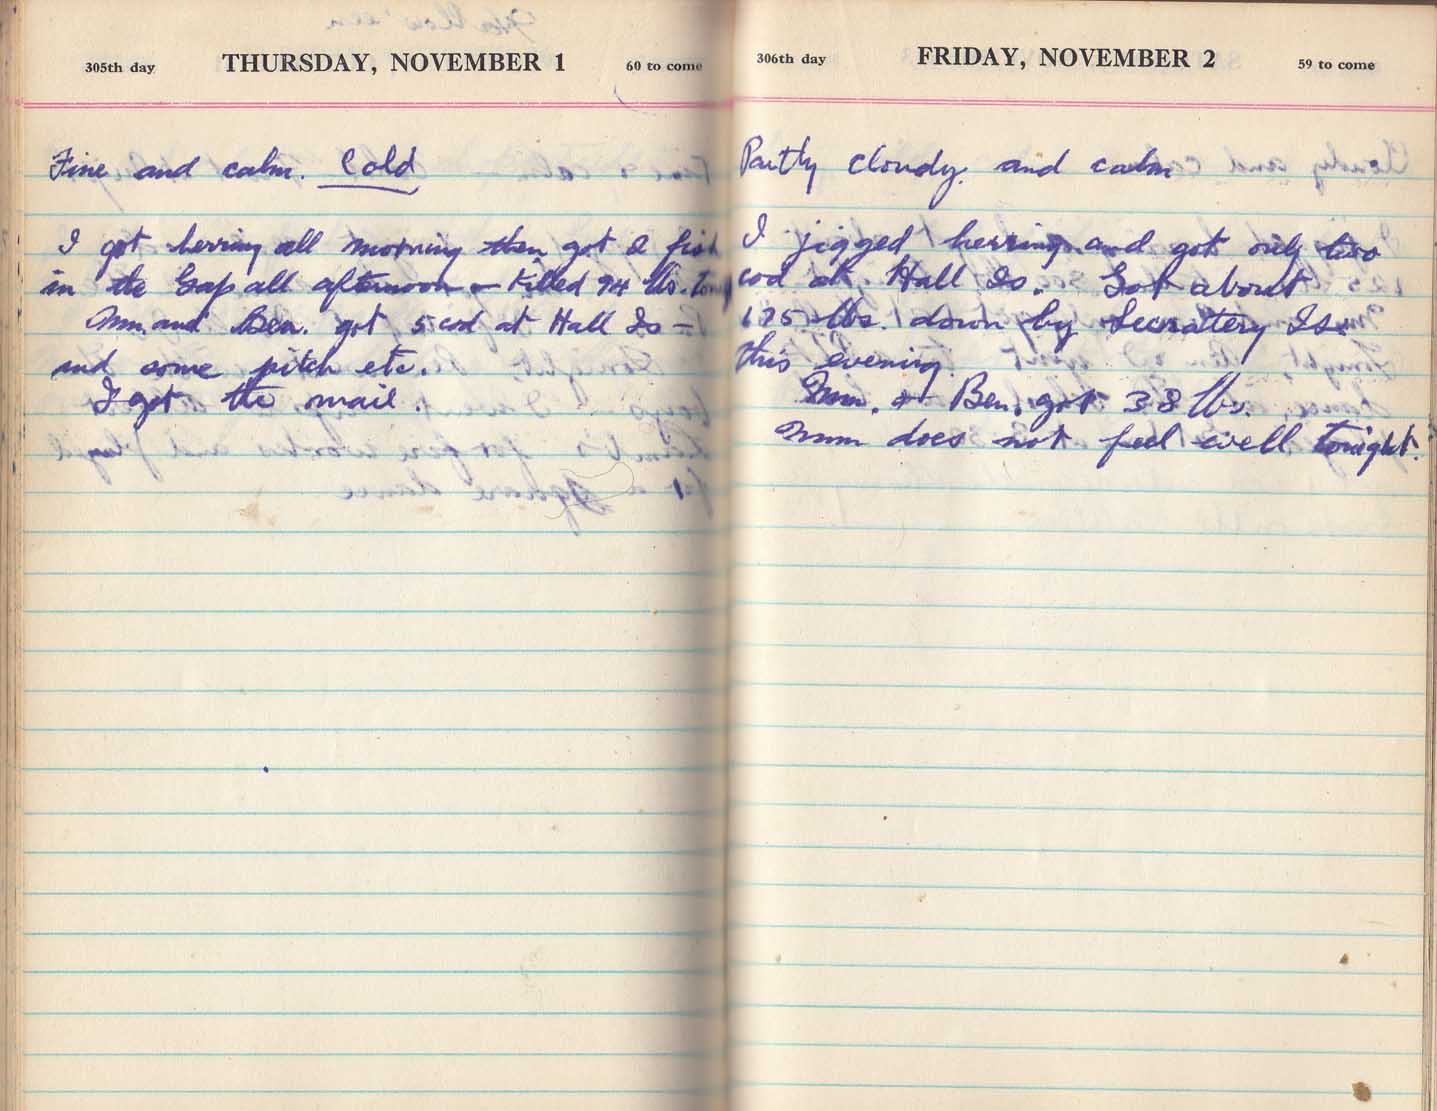 305th day THURSDAY, NOVEMBER 1 60 to come
Fine and calm. Cold
I got herring all morning then got 2 fish
in the Gap all afternoon - Killed 94 lbs.
Mm. and Ben. got 5 cod at Hall Is -
and some pitch etc.
I got the mail.
306th day FRIDAY, NOVEMBER 2 59 to come
Partly cloudy. and calm
I jigged herring and got only two
cod at. Hall Is. Got about
175 lbs. down by Is.
this evening.
Mm. & Ben. got 38 lbs.
Mum does not feel well tonight.